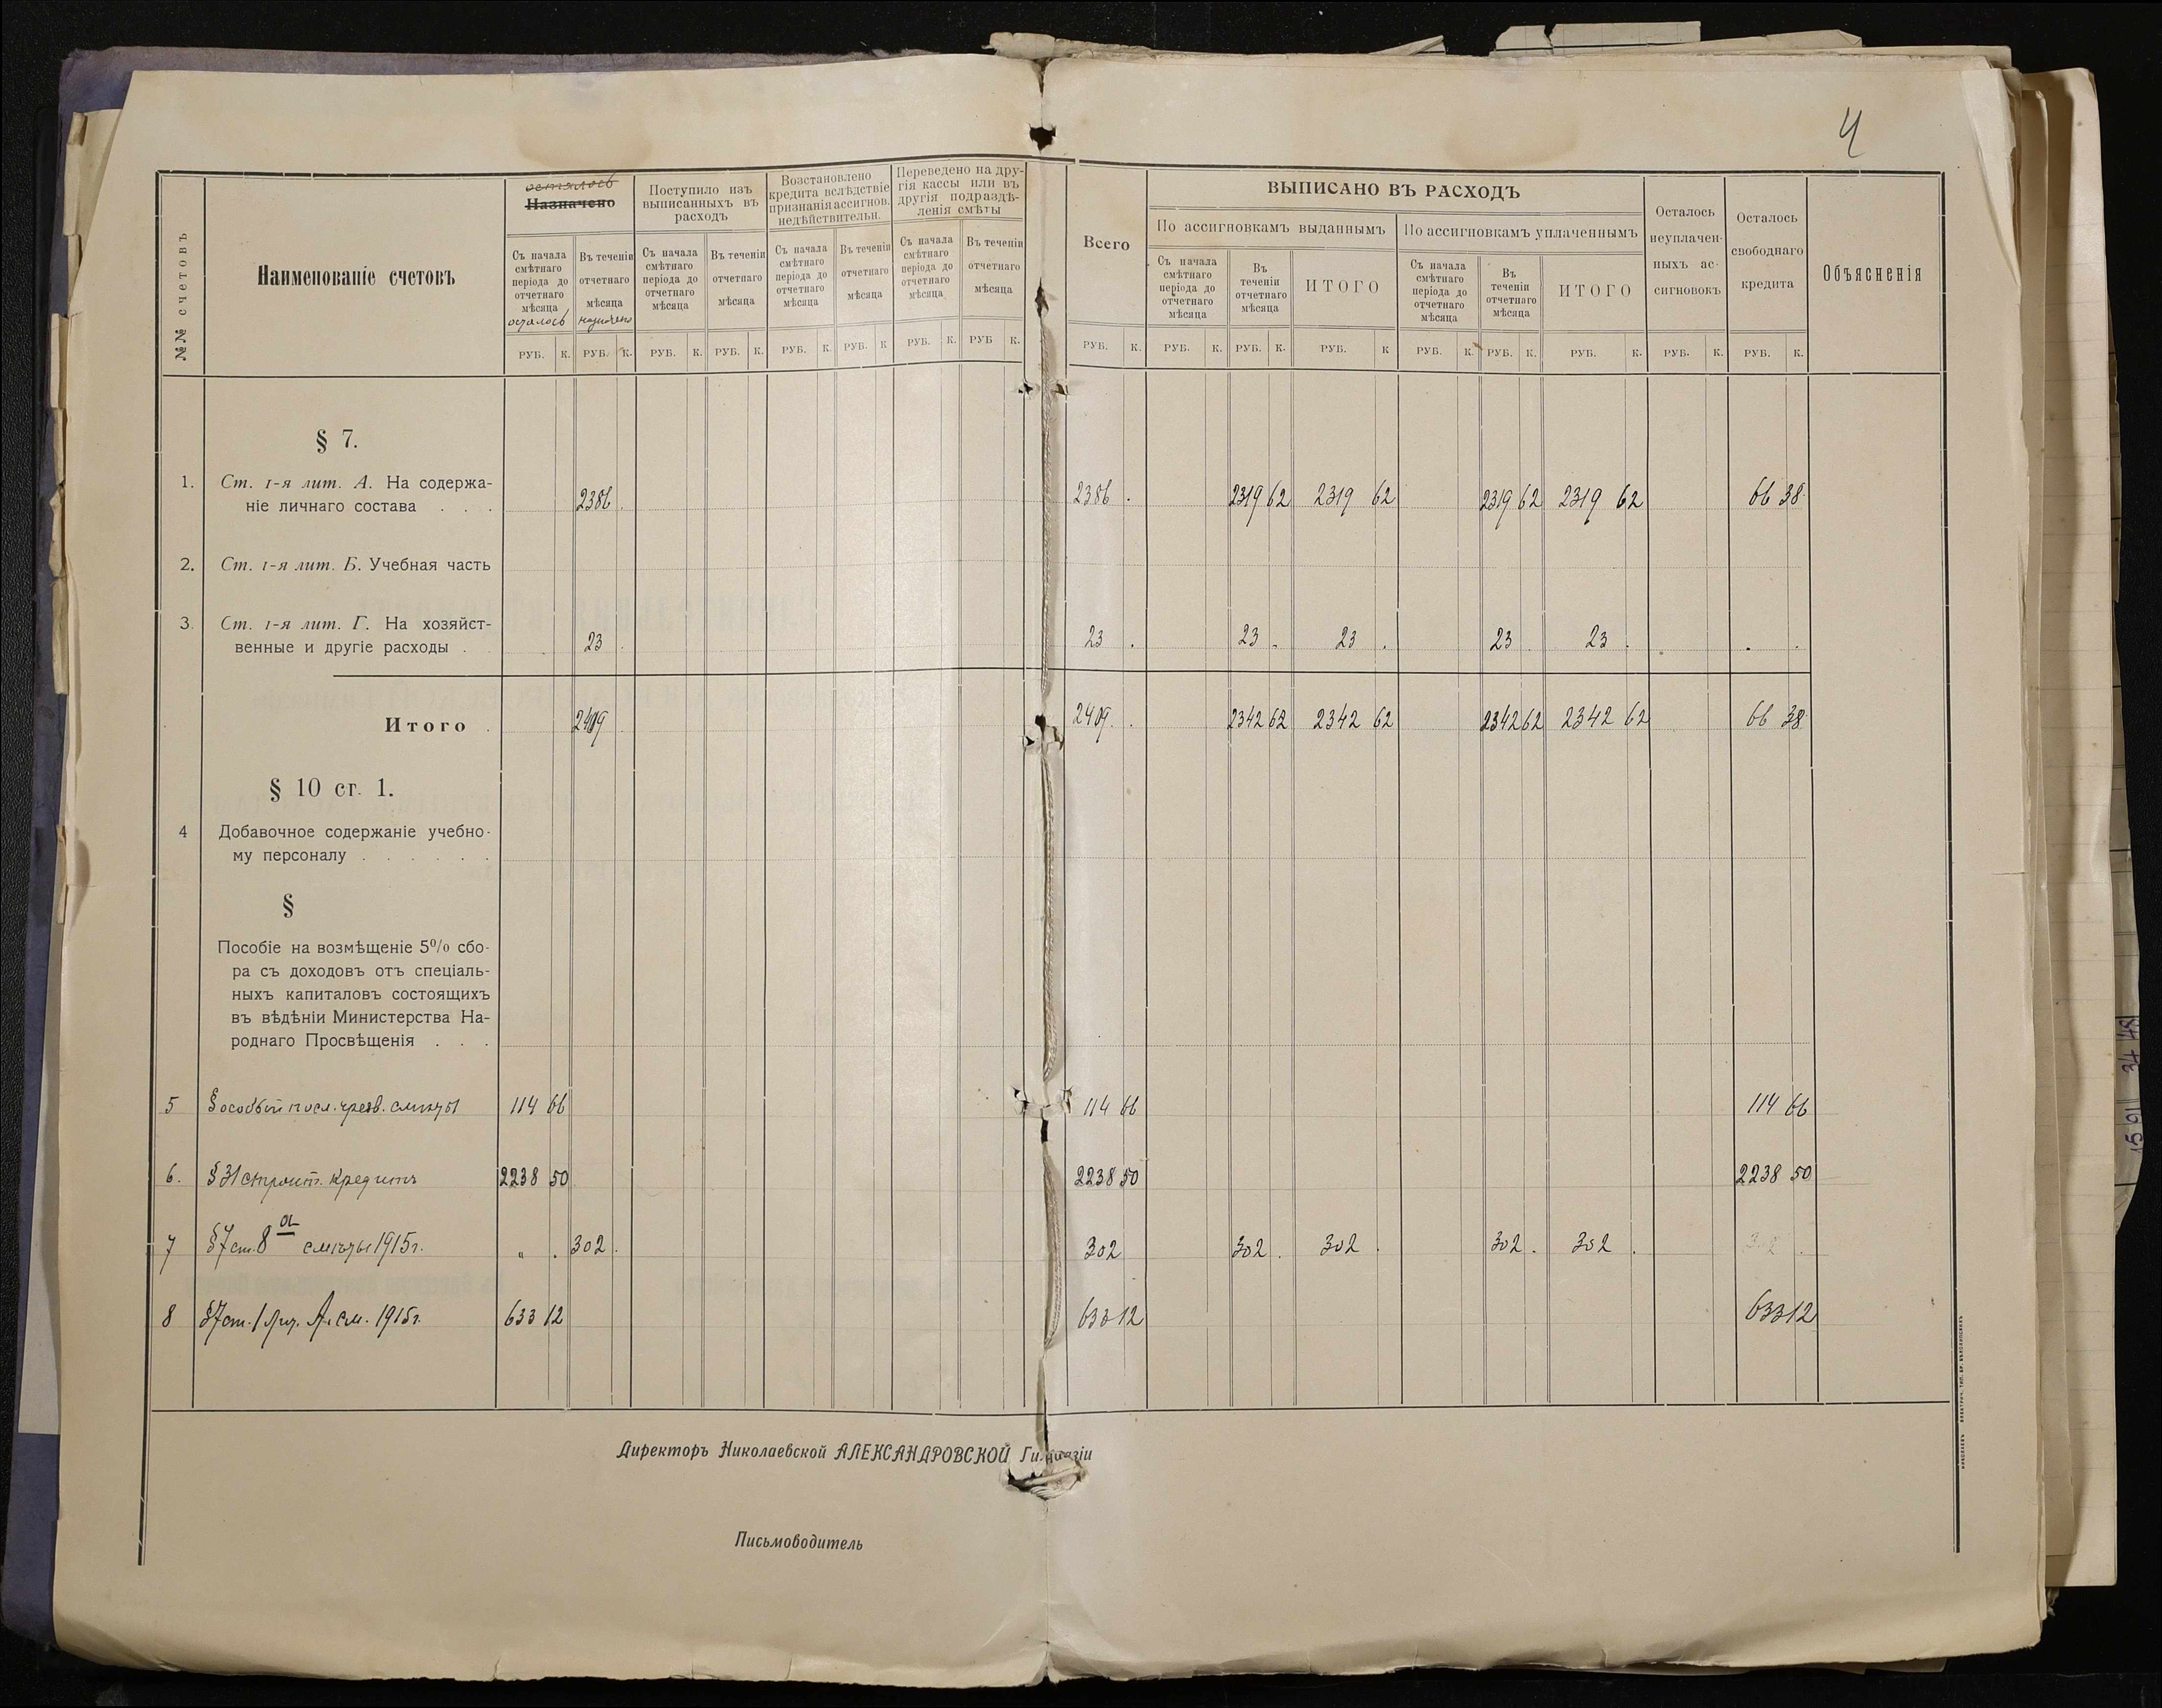 4
№№ счетовъ
Наименованіе счетовъ
осталось
Назначено
Съ начала смѣтнаго періода до отчетнаго мѣсяца
осталось
Въ теченіи отчетнаго мѣсяца
назначено
Поступило изъ выписанныхъ въ расходъ
Съ начала смѣтнаго періода до отчетнаго мѣсяца
Въ теченіи отчетнаго мѣсяца
Возстановлено кредита вслѣдствіе признанія ассигнов. недѣйствительн.
Съ начала смѣтнаго періода до отчетнаго мѣсяца
Въ теченіи отчетнаго мѣсяца
Переведено на дру-
гія кассы или въ
другія подраздѣ-
ленія смѣты
Съ начала смѣтнаго періода до отчетнаго мѣсяца
Въ теченіи отчетнаго мѣсяца
Всего
ВЫПИСАНО ВЪ РАСХОДЪ
По ассигновкамъ выданнымъ
Съ начала смѣтнаго періода до отчетнаго мѣсяца
Въ теченіи отчетнаго мѣсяца
ИТОГО
По ассигновкамъ уплаченнымъ
Съ начала смѣтнаго періода до отчетнаго мѣсяца
Въ теченіи отчетнаго мѣсяца
ИТОГО
Осталось
неуплачен-
ныхъ ас-
сигновокъ
Осталось
свободнаго
кредита
Объясненія
РУБ. К. РУБ. К. РУБ. К. РУБ. К. РУБ. К. РУБ. К РУБ. К. РУБ К. РУБ. К. РУБ. К. РУБ. К. РУБ. К РУБ. К. РУБ. К. РУБ. К. РУБ. К. РУБ. К.
§ 7.
1. Ст. 1-я лит. А. На содержа-
ніе личнаго состава . . . 2386 . 2386 . 2319 62 2319 62 2319 62 2319 62 66 38
2. Ст. 1-я лит. Б. Учебная часть
3. Ст. 1-я лит. Г. На хозяйст-
венные и другіе расходы . 23 . 23 . 23 . 23 . 23 . 23 . . .
Итого . 2409 . 2409 . 2342 62 2342 62 2342 62 2342 62 66 38
§ 10 ст. 1.
4 Добавочное содержаніе учебно-
му персоналу . . . . . .
§
Пособіе на возмѣщеніе 5% сбо-
ра съ доходовъ отъ спеціаль-
ныхъ капиталовъ состоящихъ
въ вѣдѣніи Министерства На-
роднаго Просвѣщенія . . .
5 § особый посл. чрезв. смѣты 114 66 114 66 114 66
6. § 31 строит. кредитъ 2238 50 2238 50 2238 50
7 § 7 ст. 8а смѣты 1915г. " . 302 . 302 302 . 302 . 302 . 302 . 302 .
8 § 7 ст. 1 лит. А. см. 1915г. 633 12 633 12 633 12
Директоръ Николаевской АЛЕКСАНДРОВСКОЙ Гимназіи
Письмоводитель